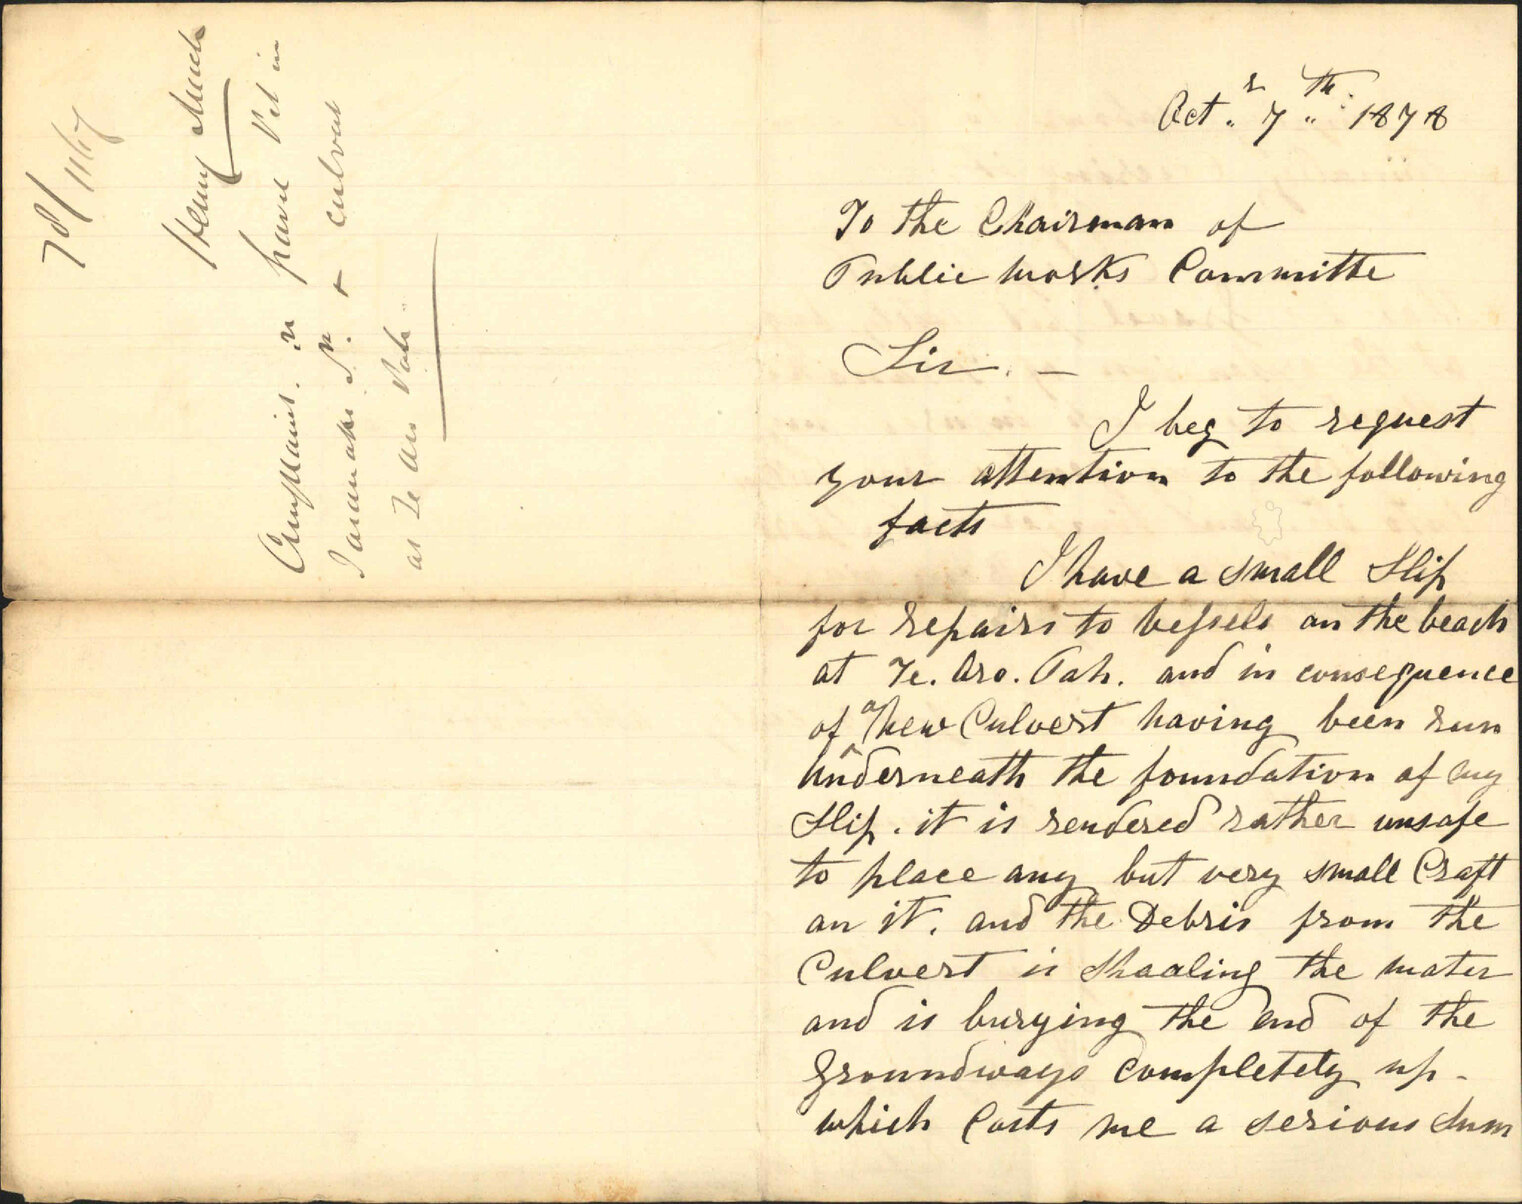 78/1167
Henry Meech
Complains. re gravel Pit in
Taranaki St. + culvert
at Te Aro Pah.
Oct.r 7th: 1878
To the Chairman of
Public Works Committe
Sir. —
I beg to request
your attention to the following
facts
I have a small Slip
for repairs to vessels on the beach
at Te. Aro. Pah. and in consequence
of a New Culvert having been run
Underneath the foundation of my
Slip. it is rendered rather unsafe
to place any but very small Craft
on it. and the Debris from the
Culvert is Shoaling the water
and is burying the End of the
Groundways Completely up-
which Costs me a serious Sum